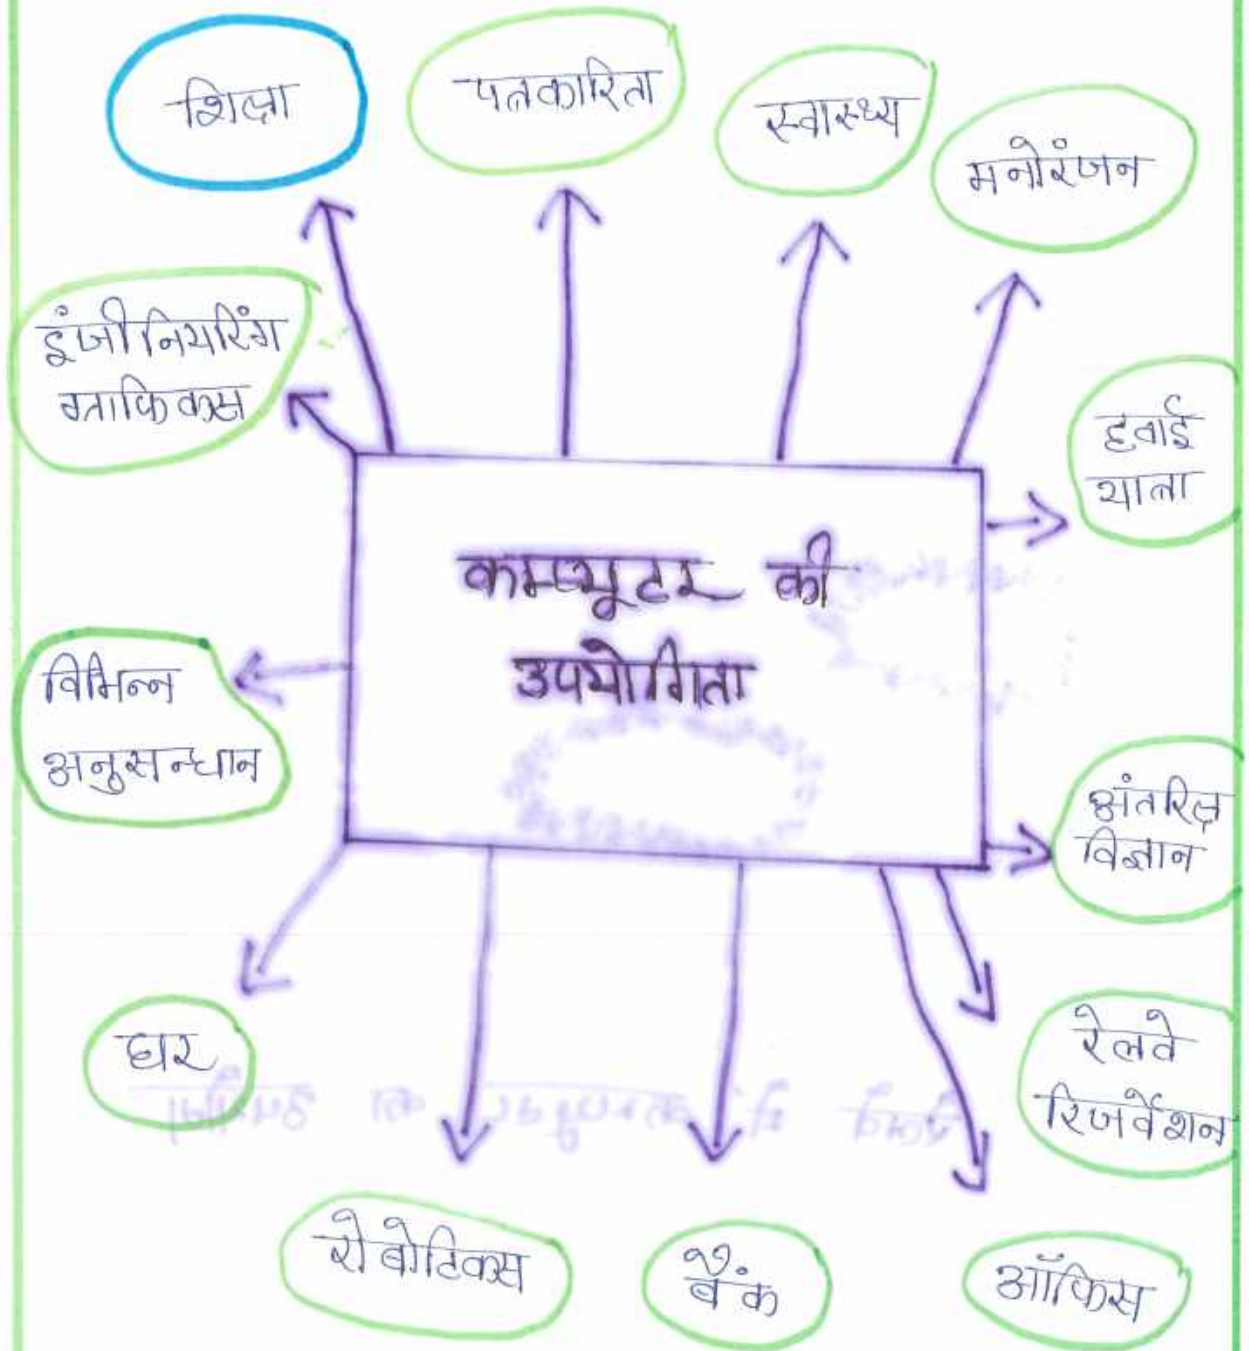 शिक्षा
पत्रकारिता
स्वास्थ्य
मनोरंजन
इंजीनियरिंग
ग्राफिक्स
हवाई
यात्रा
कम्प्यूटर की
उपयोगिता
विभिन्न
अनुसन्धान
अंतरिक्ष
विज्ञान
घर
रेलवे
रिजर्वेशन
रोबोटिक्स
बैंक
ऑफिस